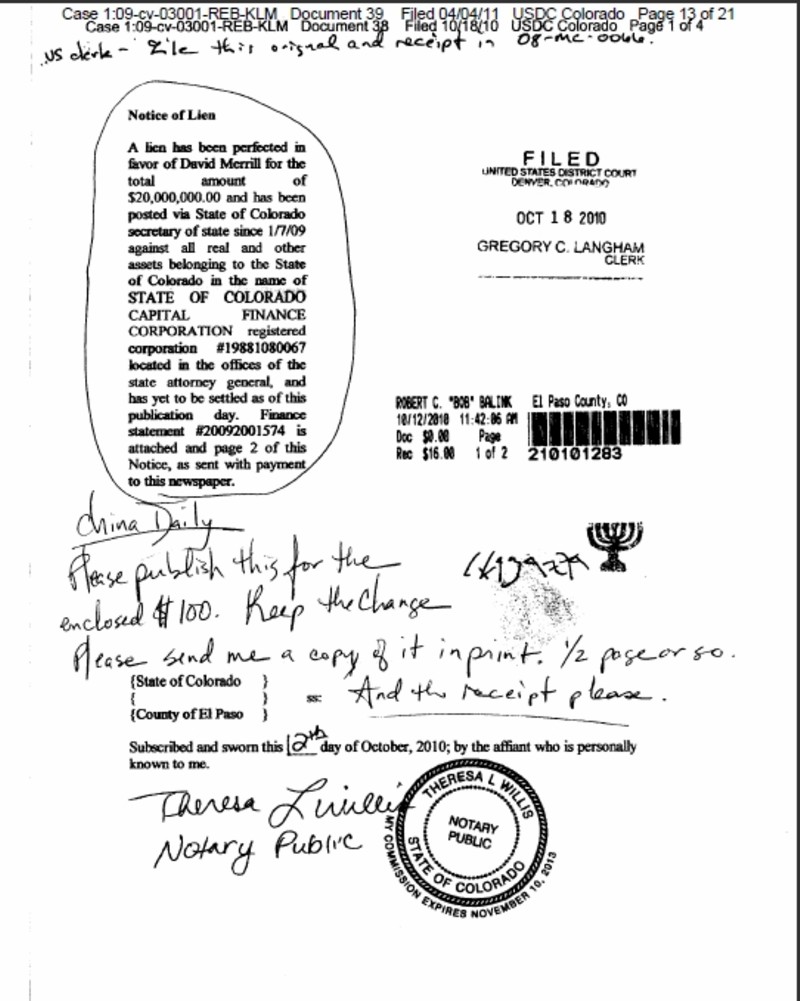 Case 1:09-cv-03001-REB-KLM Document 39 Filed 04/04/11 USDC Colorado Page 13 of 21
Case 1:09-cv-03001-REB-KLM Document 38 Filed 10/18/10 USDC Colorado Page 1 of 4
US clerk - File this original and receipt in 08-mc-0066.
Notice of Lien
A lien has been perfected in
favor of David Merrill for the
total amount of
$20,000,000.00 and has been
posted via State of Colorado
secretary of state since 1/7/09
against all real and other
assets belonging to the State
of Colorado in the name of
STATE OF COLORADO
CAPITAL FINANCE
CORPORATION registered
corporation #19881080067
located in the offices of the
state attorney general, and
has yet to be settled as of this
publication day. Finance
statement #20092001574 is
attached and page 2 of this
Notice, as sent with payment
to this newspaper.
FILED
UNITED STATES DISTRICT COURT
DENVER, COLORADO
OCT 18 2010
GREGORY C. LANGHAM
CLERK
ROBERT C. "BOB" BALINK El Paso County, CO
10/12/2010 11:42:06 AM
Doc $0.00 Page
Rec $16.00 1 of 2 210101283
China Daily
Please publish this for the
enclosed $100. Keep the change
Please send me a copy of it in print. 1/2 page or so.
And the receipt please.
{State of Colorado }
{ } ss:
{County of El Paso }
Subscribed and sworn this 12th day of October, 2010; by the affiant who is personally
known to me.
Theresa L Willis
Notary Public
THERESA L WILLIS
NOTARY
PUBLIC
STATE OF COLORADO
MY COMMISSION EXPIRES NOVEMBER 10, 2013